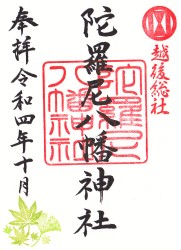 越後総社
陀羅尼八幡神社
陀羅尼
八幡神社
奉拝 令和四年十月